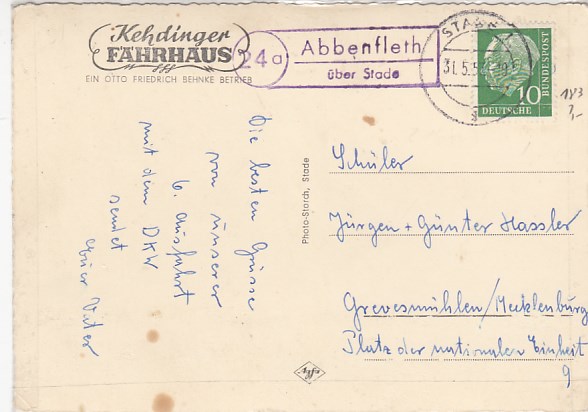 Kehdinger
FÄHRHAUS
EIN OTTO FRIEDRICH BEHNKE BETRIEB
24a
Abbenfleth
über Stade
STADE
31.5.5
10
DEUTSCHE
BUNDESPOST
183
7,-
Die besten Grüsse
von unserer
6. Ausfahrt
mit dem DKW
sendet
Euer Vater
Photo-Starch, Stade
Schüler
Jürgen + Günter Hassler
Grevesmühlen/Mecklenburg
Platz der nationalen Einheit
9
Agfa